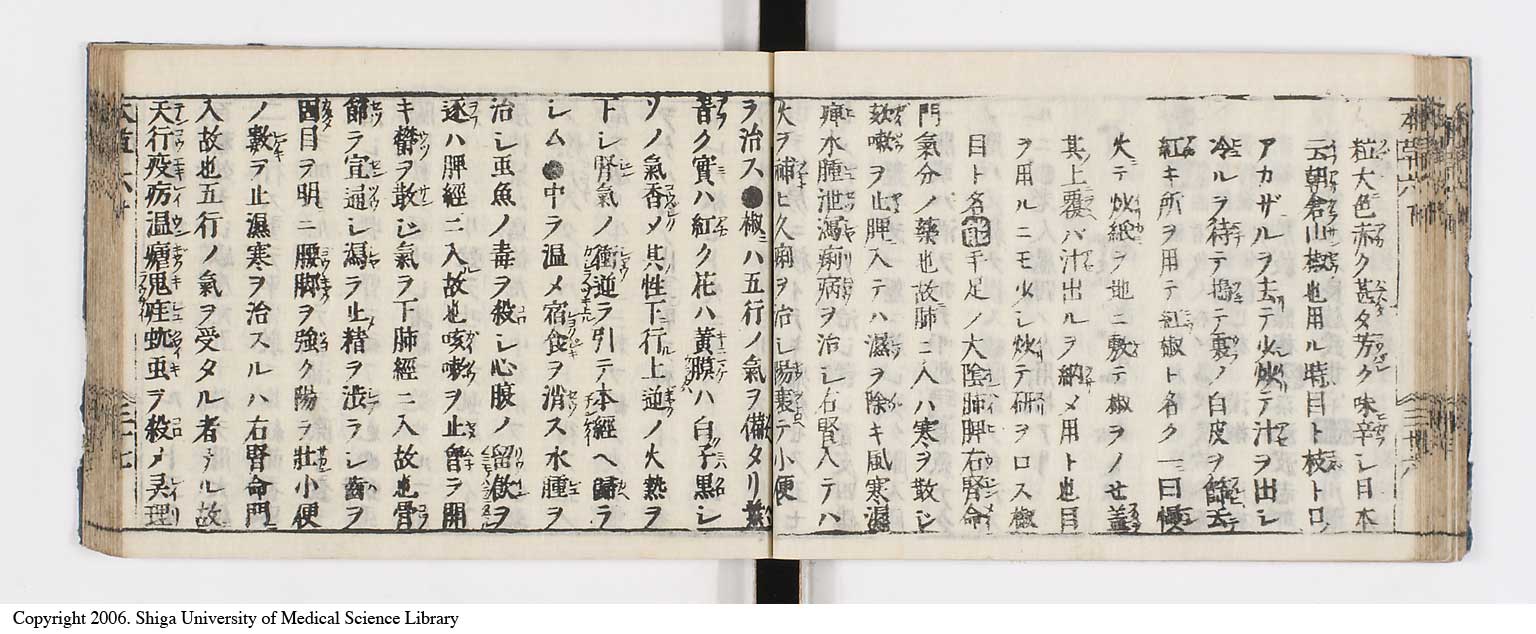 粒大色赤ク甚タ芳ク味辛シ日本
云朝倉山椒也用ル時目ト枝ト口
アカザルヲ去テ少炒テ汁ヲ出シ
冷ルヲ待テ搗テ裏ノ白皮ヲ篩去
紅キ所ヲ用テ紅椒ト名ク一曰慢
火テ炒紙ヲ地ニ敷テ椒ヲノせ蓋
其上覆バ汁出ルヲ納メ用ト也目
ヲ用ルニモ少シ炒テ研ヲロス椒
目ト名 手足ノ大陰肺脾右腎命
門氣分ノ藥也故肺ニ入ハ寒ヲ散シ
欬嗽ヲ止脾入テハ濕ヲ除キ風寒濕
痺水腫泄瀉痢病ヲ治シ右腎入テハ
火ヲ補ヒ久痢ヲ治シ陽衰テ小便
ヲ治ス●椒ハ五行ノ氣ヲ備タリ葉
青ク實ハ紅ク花ハ黄膜ハ白子黒シ
ソノ氣香メ其性下行上逆ノ火熱ヲ
下シ腎氣ノ衝逆ヲ引テ本經ヘ歸ラ
シム●中ヲ温メ宿食ヲ消ス水腫ヲ
治シ䖝魚ノ毒ヲ殺シ心腹ノ留飲ヲ
逐ハ脾經ニ入故也咳嗽ヲ止胷ヲ開
キ欝ヲ散シ氣ヲ下肺經ニ入故也骨
節ヲ宣通シ瀉ヲ止精ヲ渋ラシ齒ヲ
固目ヲ明ニ腰脚ヲ強ク陽ヲ壯小便
ノ數ヲ止濕寒ヲ治スルハ右腎命門
入故也五行ノ氣ヲ受タル者ナル故
天行疫疠温瘧鬼疰蚘䖝ヲ殺メ灵理
Copyright 2006. Shiga University of Medical Science Library